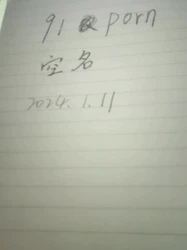 91 porn
空名
2024.1.11